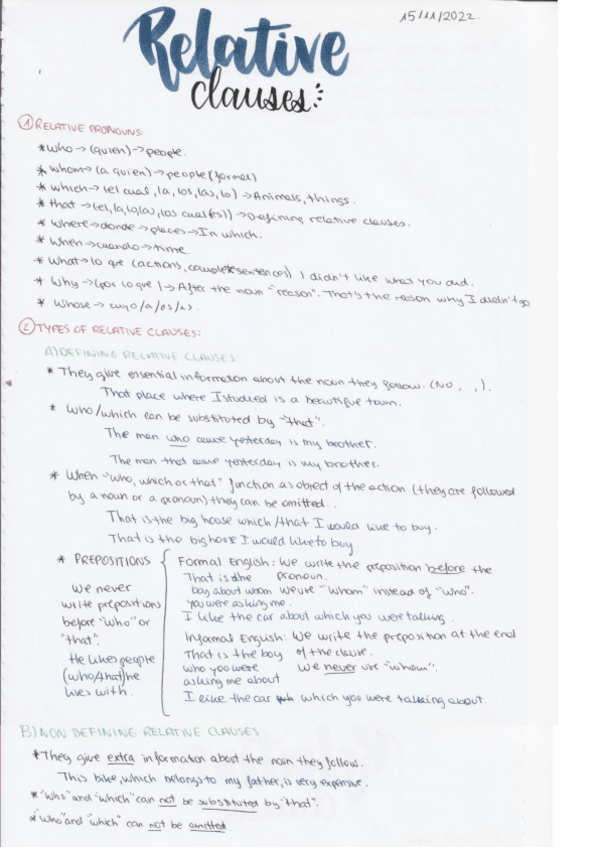 15/11/2022.
Relative
clauses
① RELATIVE PRONOUNS:
* Who → (quien) → people.
* whom → (a quien) → people (formal)
* which → (el cual, la, los, las, lo) → Animals, things.
* that → (el, la, lo, las, los cual(es)) → Defining relative clauses.
* where → donde → places → In which.
* When → cuando → time.
* What → lo que (actions, complete sentences) I didn't like what you did.
* Why → (por lo que) → After the noun "reason". That's the reason why I didn't go
* Whose → cuyo/a/os/as.
② TYPES OF RELATIVE CLAUSES:
A) DEFINING RELATIVE CLAUSES:
* They give essential information about the noun they follow. (No , ,).
That place where I studied is a beautiful town.
* Who/which can be substituted by "that".
The man who came yesterday is my brother.
The man that came yesterday is my brother.
* When "who, which or that" function as object of the action (they are followed
by a noun or a pronoun) they can be omitted.
That is the big house which/that I would like to buy.
That is the big house I would like to buy
* PREPOSITIONS
We never
write prepositions
before "who" or
"that".
He likes people
(who/that) he
lives with.
Formal English: We write the preposition before the
pronoun.
We use "whom" instead of "who".
That is the
boy about whom
you were asking me.
I like the car about which you were talking.
Informal English: We write the preposition at the end
of the clause.
We never use "whom".
That is the boy
who you were
asking me about
I like the car which you were talking about.
B) NON DEFINING RELATIVE CLAUSES
* They give extra information about the noun they follow.
This bike, which belongs to my father, is very expensive.
* "Who" and "which" can not be substituted by "that".
* "Who" and "which" can not be omitted.